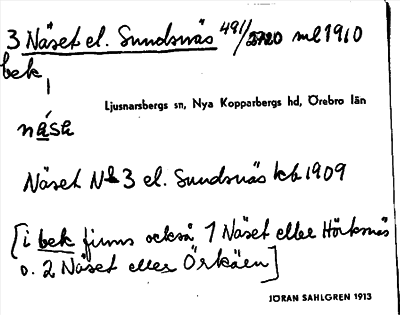 3 Näset el. Sundsnäs 491/2720 ml 1910
bek
Ljusnarsbergs sn, Nya Kopparbergs hd, Örebro län
näsɛ
Näset No 3 el. Sundsnäs kb 1909
[i bek finns också 1 Näset eller Hörksnäs
o. 2 Näset eller Örkäen]
JÖRAN SAHLGREN 1913